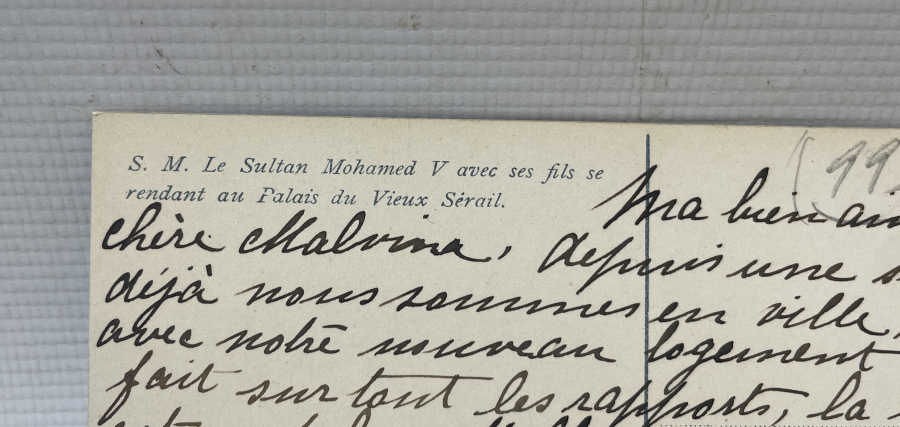 S. M. Le Sultan Mohamed V avec ses fils se
rendant au Palais du Vieux Sérail.
99
Ma bien
chère Malvina, depuis une
déjà nous sommes en ville,
avec notre nouveau logement
fait sur tout les rapports, la